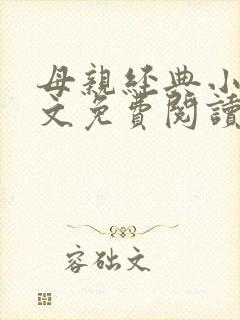 母親經典小
文免費閱讀
容础文